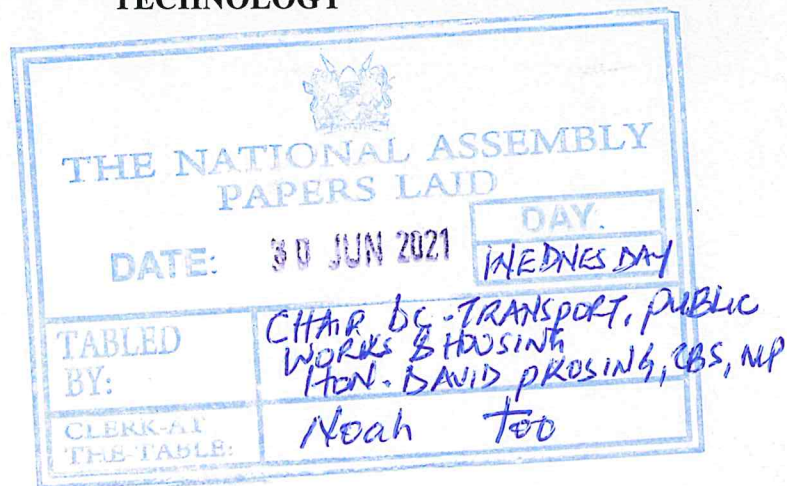 TECHNOLOGY
THE NATIONAL ASSEMBLY
PAPERS LAID
DATE: 30 JUN 2021
DAY.
WEDNESDAY
TABLED BY:
CHAIR DC - TRANSPORT, PUBLIC
WORKS & HOUSING
HON. DAVID PKOSING, CBS, MP
CLERK-AT THE-TABLE:
Noah Too